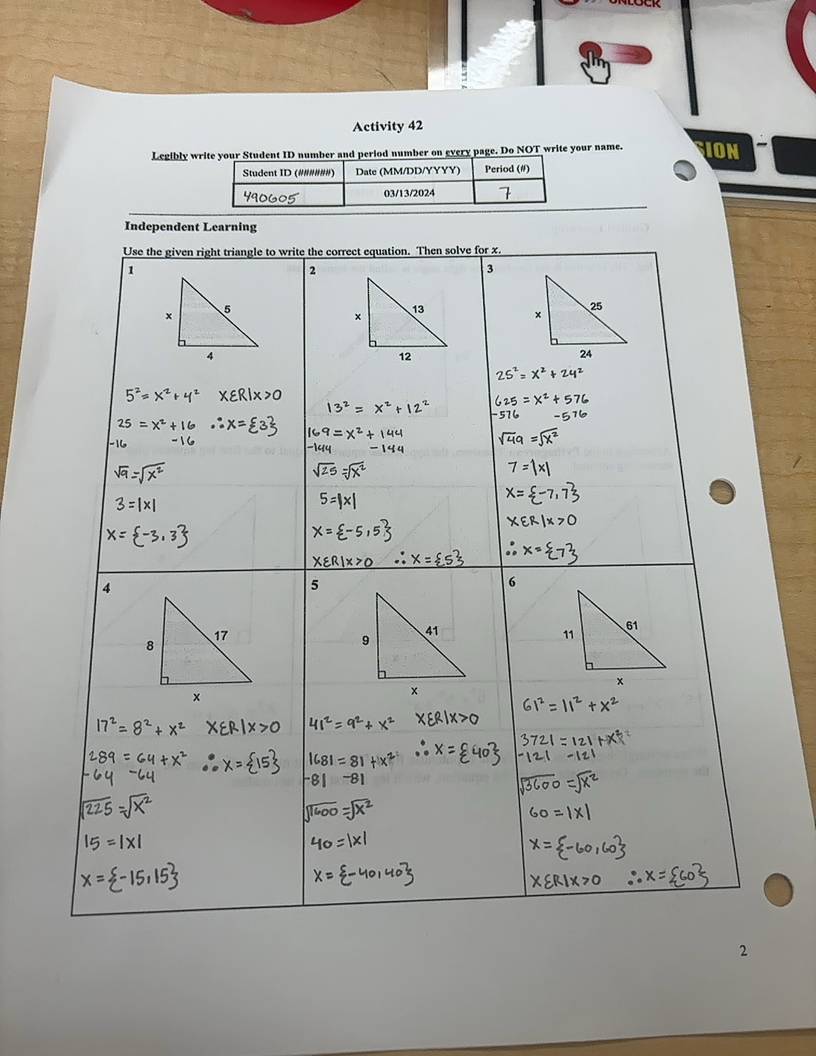 UNLOCK
SION
Activity 42
Legibly write your Student ID number and period number on every page. Do NOT write your name.
Student ID (######) Date (MM/DD/YYYY) Period (#)
490605 03/13/2024 7
Independent Learning
Use the given right triangle to write the correct equation. Then solve for x.
1
x 5
4
5² = x² + 4² XƐR|X>0
25 = x² + 16 ∴ x = {3}
-16 -16
√9 = √x²
3 = |x|
x = {-3, 3}
2
x 13
12
13² = x² + 12²
169 = x² + 144
-144 -144
√25 = √x²
5 = |x|
x = {-5, 5}
XƐR|X>0 ∴ x = {5}
3
x 25
24
25² = x² + 24²
625 = x² + 576
-576 -576
√49 = √x²
7 = |x|
x = {-7, 7}
XƐR|X>0
∴ x = {7}
4
8 17
x
17² = 8² + x² XƐR|X>0
289 = 64 + x² ∴ x = {15}
-64 -64
√225 = √x²
15 = |x|
x = {-15, 15}
5
9 41
x
41² = 9² + x² XƐR|X>0
1681 = 81 + x² ∴ x = {40}
-81 -81
√1600 = √x²
40 = |x|
x = {-40, 40}
6
11 61
x
61² = 11² + x²
3721 = 121 + x²
-121 -121
√3600 = √x²
60 = |x|
x = {-60, 60}
XƐR|X>0 ∴ x = {60}
2